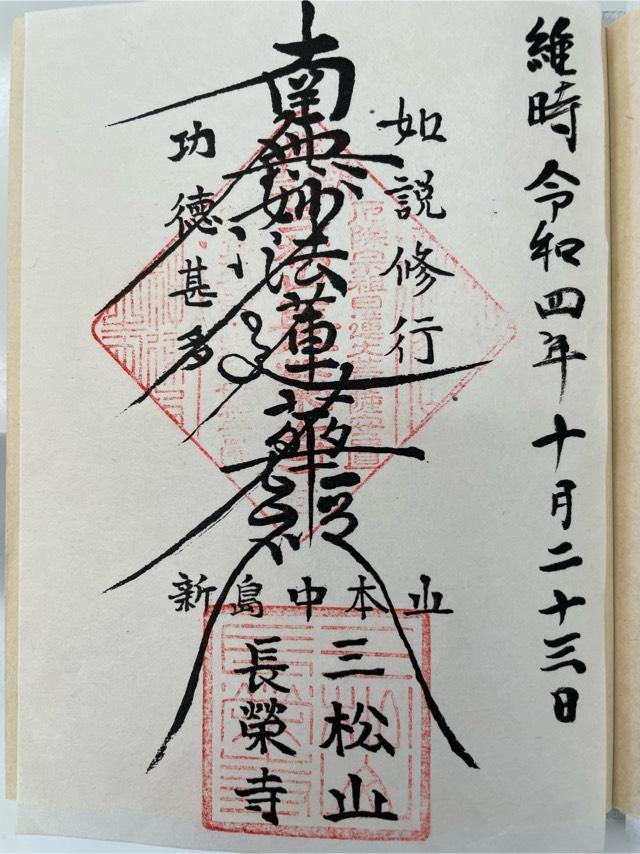 維時令和四年十月二十三日
如説修行
南無妙法蓮華経
功徳甚多
新島中本山
三松山
長榮寺